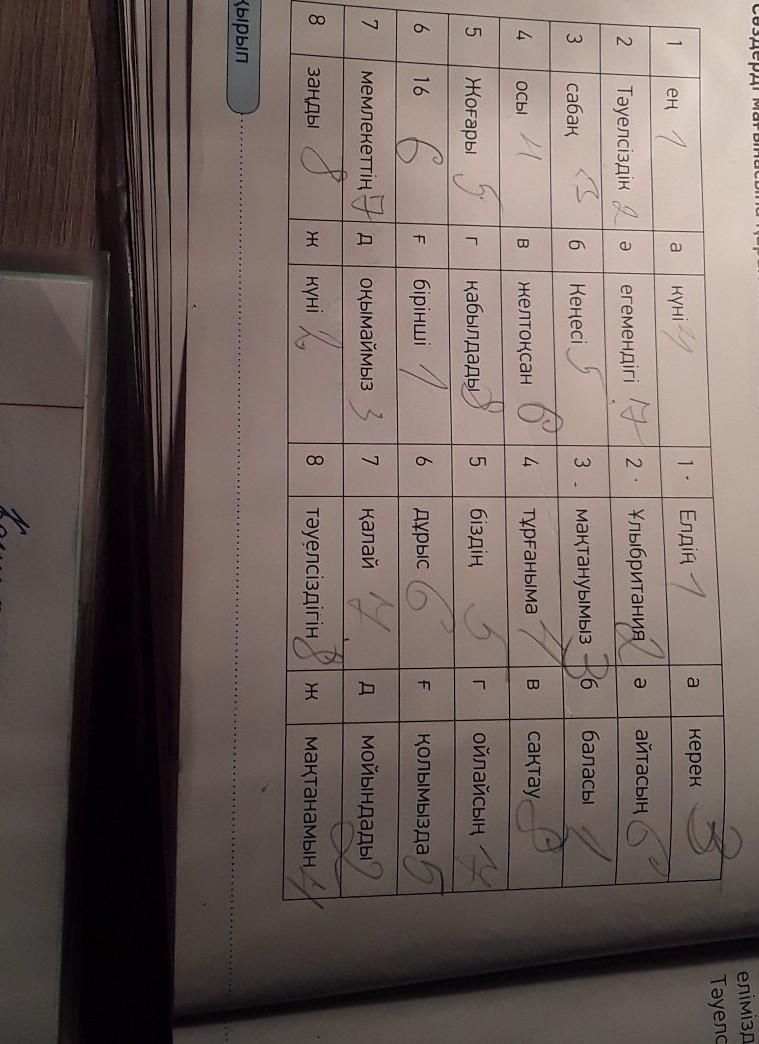 1 ең 1 а күні 4 1. Елдің 1 а керек 3
2 Тәуелсіздік 2 ә егемендігі 7 2. Ұлыбритания 2 ә айтасың 6
3 сабақ 3 б Кеңесі 5 3. мақтануымыз 3 б баласы 1
4 осы 4 в желтоқсан 6 4 тұрғаныма 4 в сақтау 8
5 Жоғары 5 г қабылдады 8 5 біздің 5 г ойлайсың 7
6 16 6 ғ бірінші 1 6 дұрыс 6 ғ қолымызда 5
7 мемлекеттің 7 д оқымаймыз 3 7 қалай 7 д мойындады 2
8 заңды 8 ж күні 2 8 тәуелсіздігін 8 ж мақтанамын 4
қырып
елімізд
Тәуелс